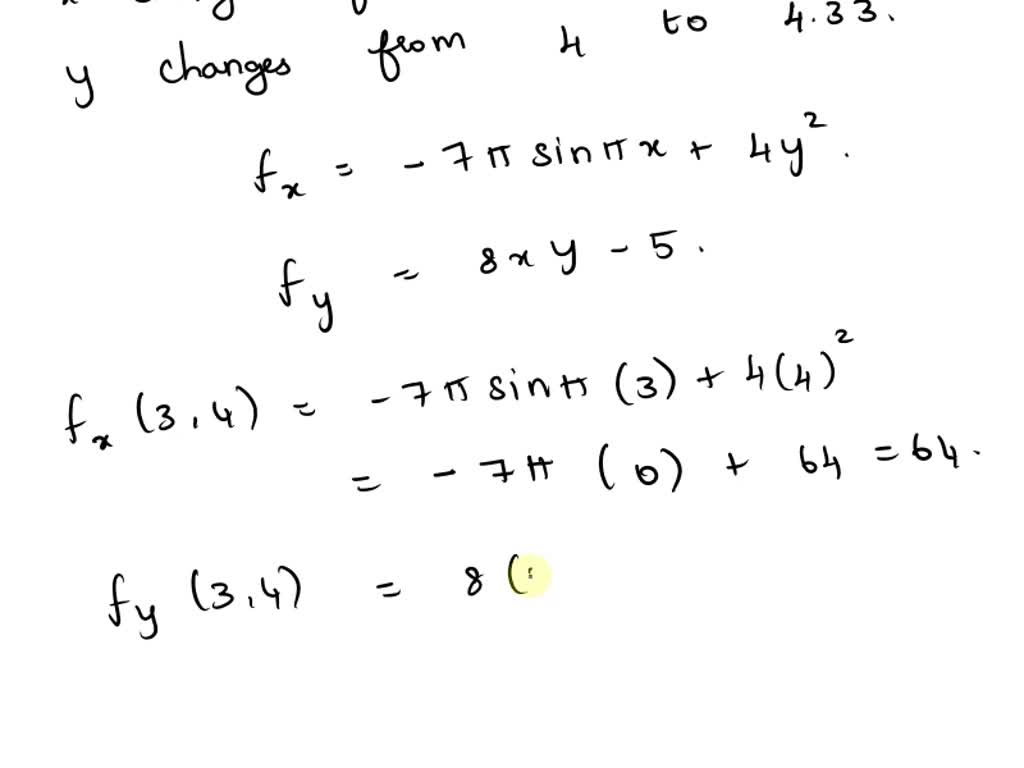 y changes from 4 to 4.33.
fₓ = - 7π sin πx + 4y².
f_y = 8xy - 5.
fₓ (3,4) = -7π sin π (3) + 4(4)²
= - 7π (0) + 64 = 64.
f_y (3,4) = 8 (